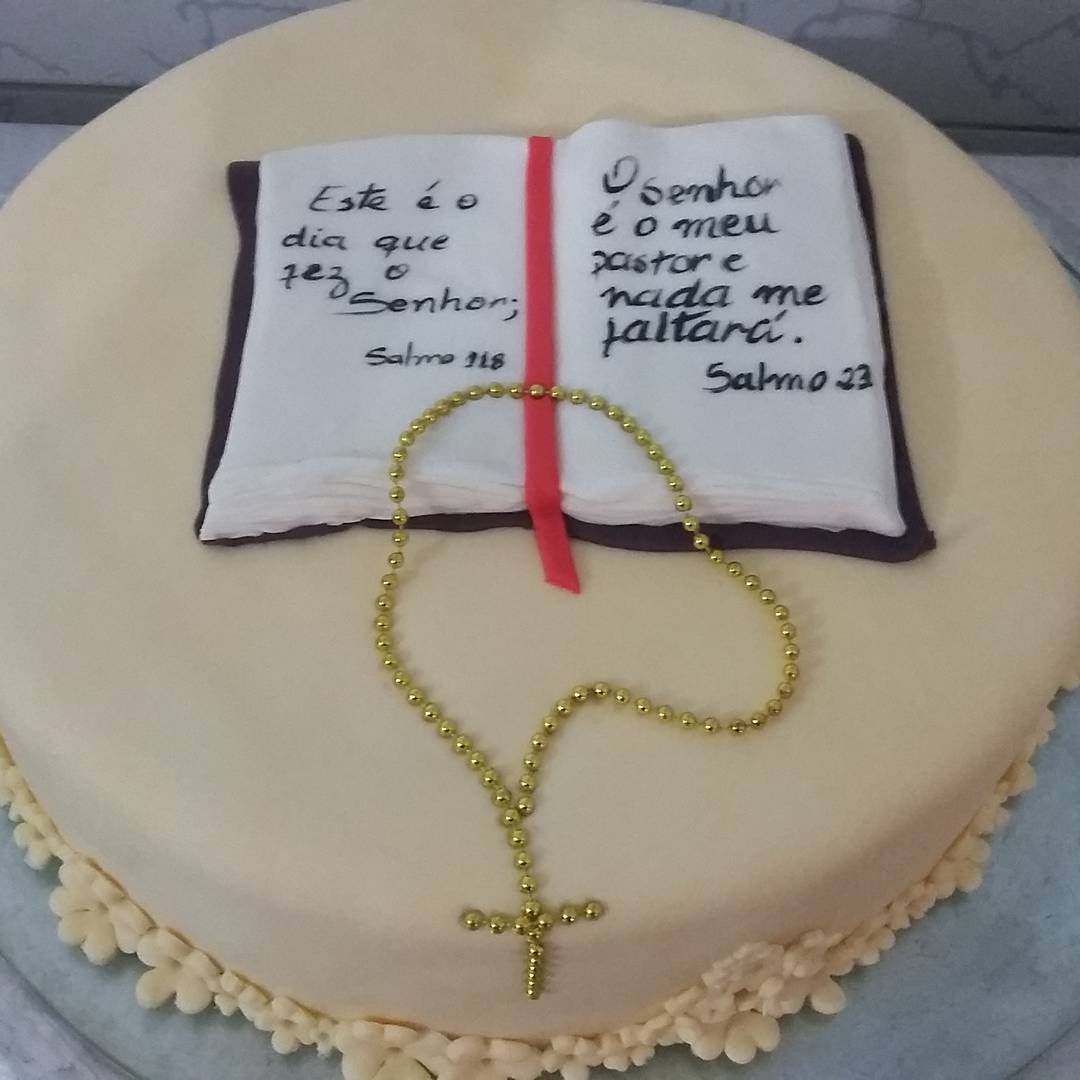 Este é o
dia que
fez o
Senhor;
Salmo 118
O Senhor
é o meu
pastor e
nada me
faltará.
Salmo 23